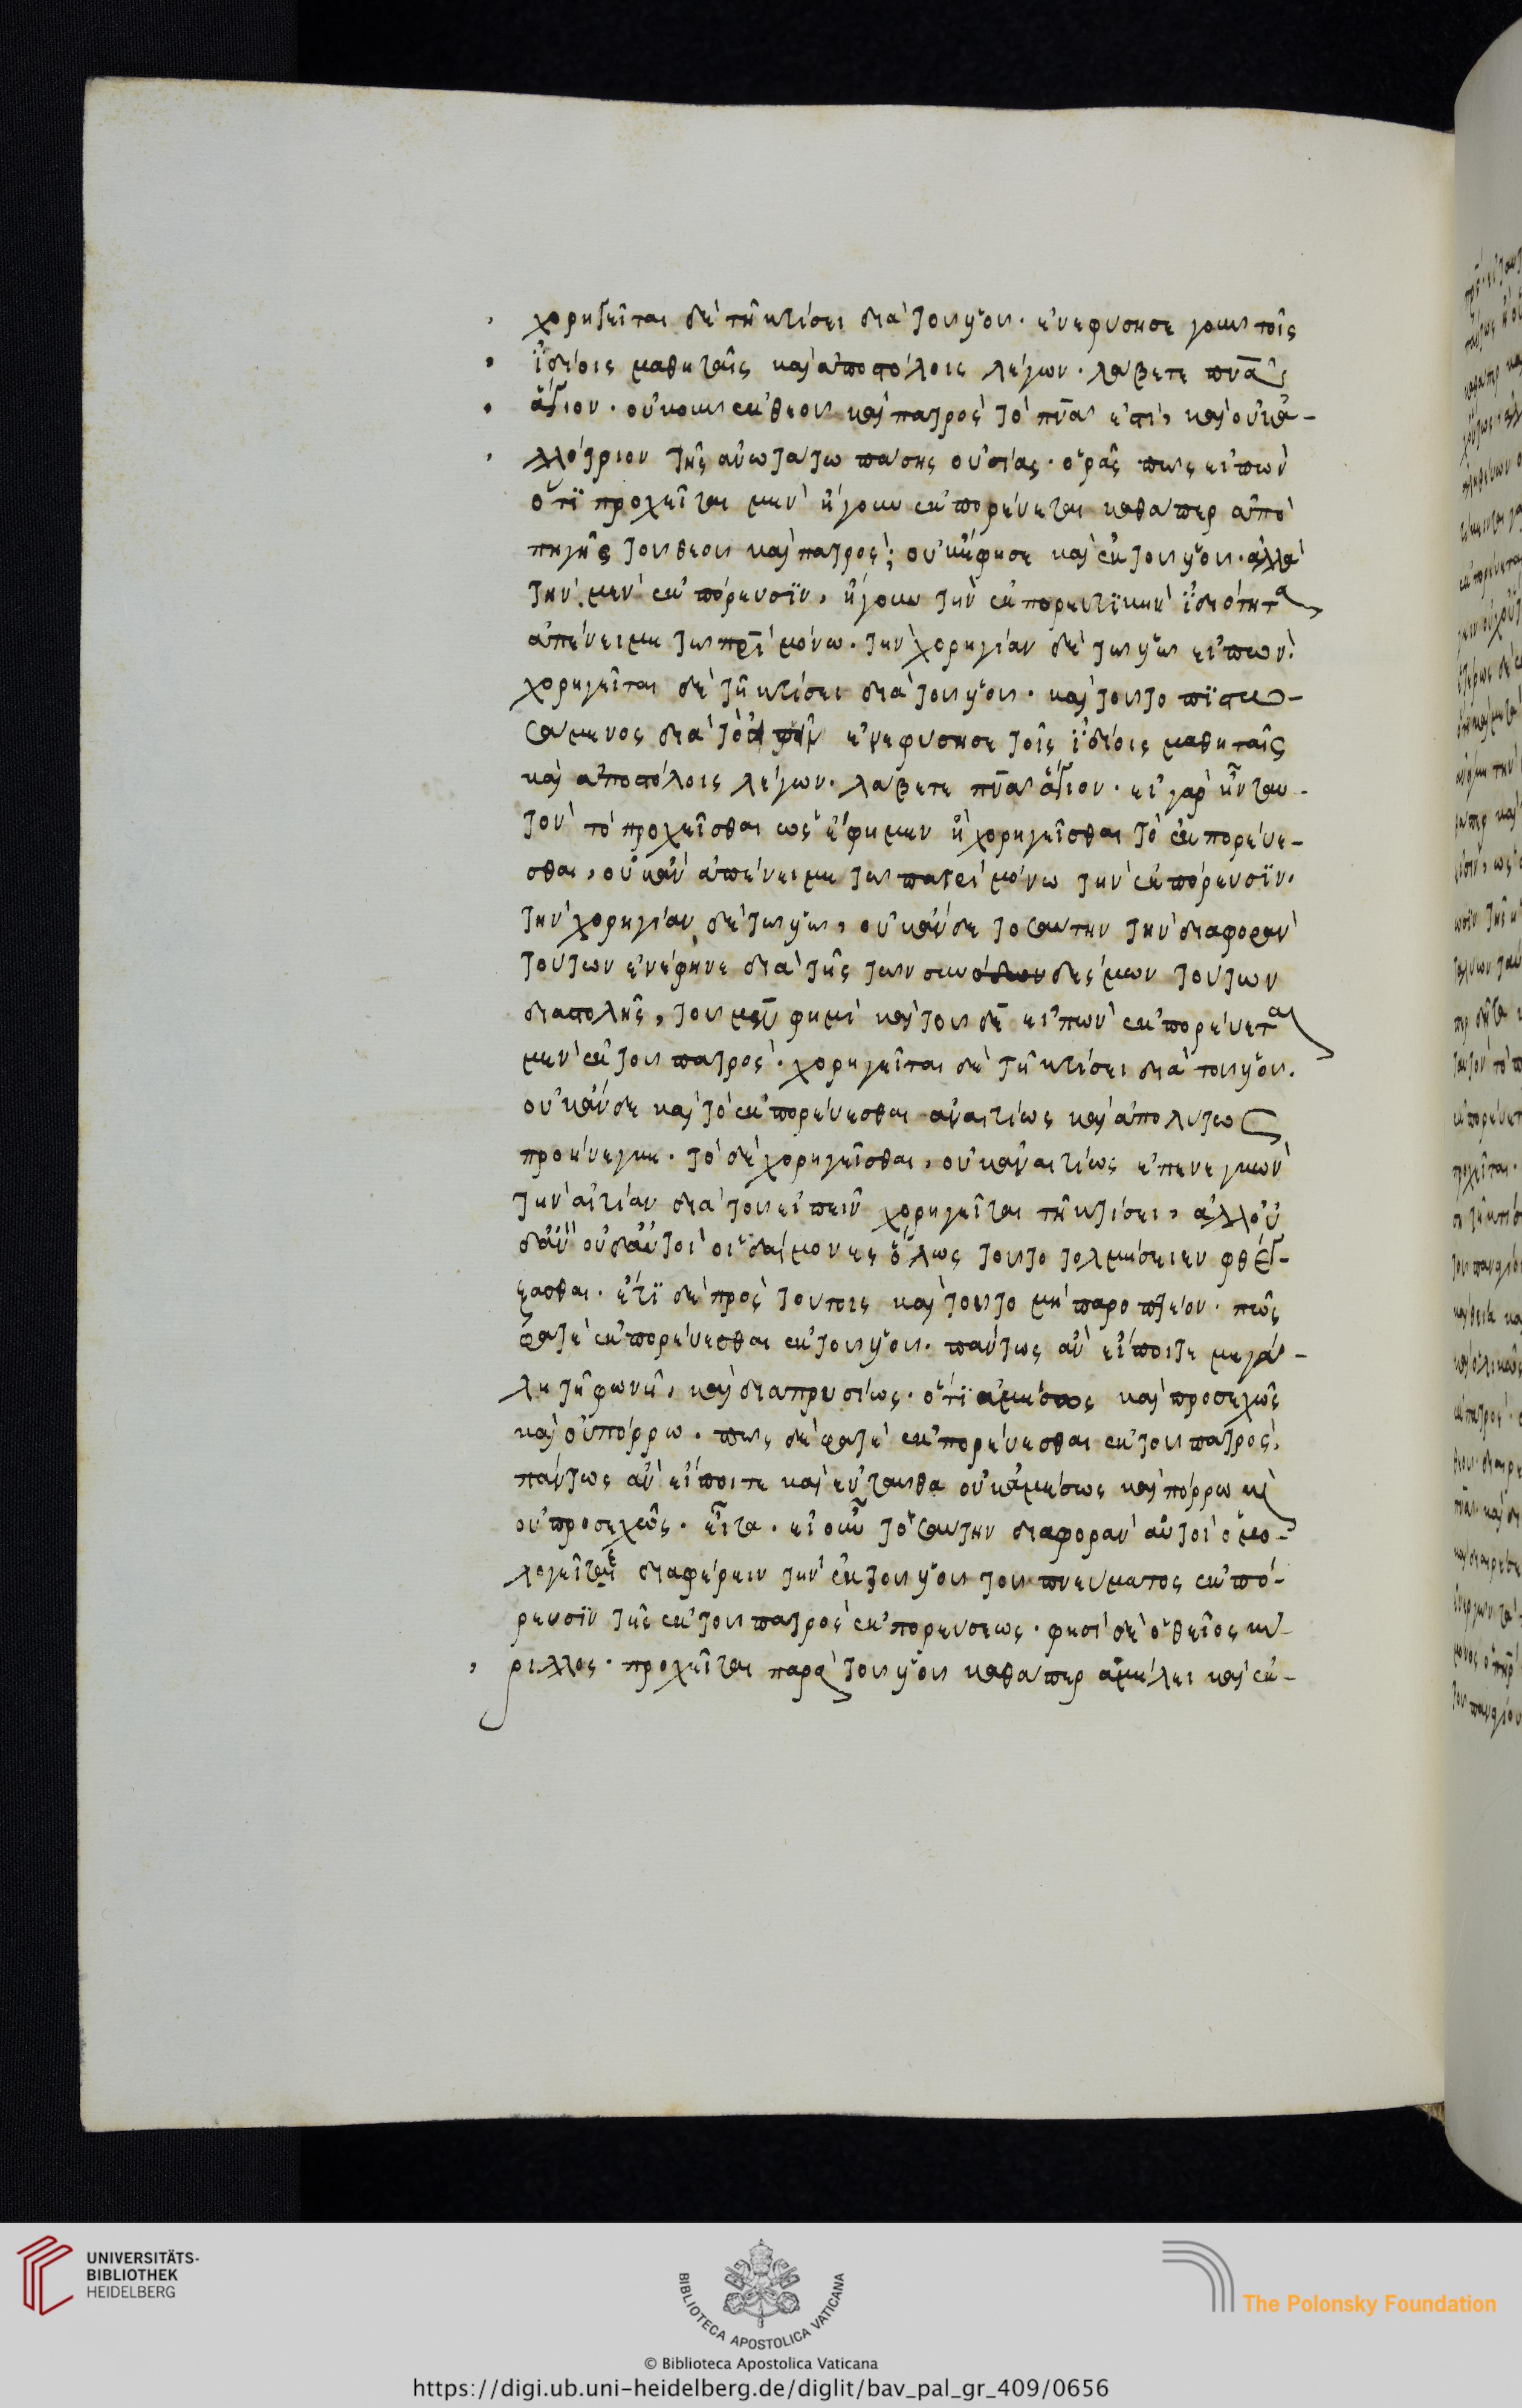 χορηγεῖται δὲ τῇ κτίσει διὰ τοῦ υἱοῦ. ἐνεφύσησε γοῦν τοῖς
ἰδίοις μαθηταῖς καὶ ἀποστόλοις λέγων. λάβετε πνα
ἅγιον. οὐκοῦν ἐκ θεοῦ καὶ πατρὸς τὸ πνα ἐστί, καὶ οὐκ ἀ-
λλότριον τῆς ἀνωτάτω πάσης οὐσίας. ὁρᾷς πῶς εἰπὼν
ὅτι προχεῖται μὲν ἤγουν ἐκπορεύεται καθάπερ ἀπὸ
πηγῆς τοῦ θεοῦ καὶ πατρός; οὐκ ἔφησε καὶ ἐκ τοῦ υἱοῦ. ἀλλὰ
τὴν μὲν ἐκπόρευσιν, ἤγουν τὴν ἐκπορευτικὴν ἰδιότητα
ἀπένειμε τῷ πρὶ μόνω. τὴν χορηγίαν δὲ τῷ υἱῷ εἰπών.
χορηγεῖται δὲ τῇ κτίσει διὰ τοῦ υἱοῦ. καὶ τοῦτο πιστω-
σάμενος διὰ τὸ ἐνεφύσησε τοῖς ἰδίοις μαθηταῖς
καὶ ἀποστόλοις λέγων. λάβετε πνα ἅγιον. εἰ γὰρ ἦν ταυ-
τὸν τὸ προχεῖσθαι ὡς ἔφημεν ἢ χορηγεῖσθαι τὸ ἐκπορεύε-
σθαι, οὐκ ἂν ἀπένειμε τῷ πατρὶ μόνω τὴν ἐκπόρευσιν.
τὴν χορηγίαν δὲ τῷ υἱῷ, οὐκ ἂν δὲ τοσαύτην τὴν διαφορὰν
τούτων ἐνέφηνε διὰ τῆς τῶν συνδέσμων τούτων
διαστολῆς, τοῦ μὲν φημὶ καὶ τοῦ δὲ εἰπὼν ἐκπορεύεται
μὲν ἐκ τοῦ πατρός. χορηγεῖται δὲ τῇ κτίσει διὰ τοῦ υἱοῦ.
οὐκ ἂν δὲ καὶ τὸ ἐκπορεύεσθαι ἀναιτίως καὶ ἀπολύτως
προήνεγκε. τὸ δὲ χορηγεῖσθαι, οὐκ ἀναιτίως ἐπενεγκὼν
τὴν αἰτίαν διὰ τοῦ εἰπεῖν χορηγεῖται τῇ κτίσει, ἀλλ οὐ
δ ἂν οὐδ αὐτοὶ οἱ δαίμονες ὅλως τοῦτο τολμήσειεν φθέγ-
ξασθαι. ἔτι δὲ πρὸς τούτοις καὶ τοῦτο μὴ παροπτέον. πῶς
φατὲ ἐκπορεύεσθαι ἐκ τοῦ υἱοῦ. πάντως ἂν εἴποιτε μεγά-
λη τῇ φωνῇ, καὶ διαπρυσίως. ὅτι ἀμέσως καὶ προσεχῶς
καὶ οὐ πόρρω. πῶς δέ φατὲ ἐκπορεύεσθαι ἐκ τοῦ πατρός.
πάντως ἂν εἴποιτε καὶ ἐνταῦθα οὐκ ἀμέσως καὶ πόρρω καὶ
οὐ προσεχῶς. εἶτα. εἰ οὖν τοσαύτην διαφορὰν αὐτοὶ ὁμο-
λογεῖτε διαφέρειν τὴν ἐκ τοῦ υἱοῦ τοῦ πνεύματος ἐκπό-
ρευσιν τῆς ἐκ τοῦ πατρὸς ἐκπορεύσεως. φησὶ δὲ ὁ θεῖος κύ-
ριλλος. προχεῖται παρὰ τοῦ υἱοῦ καθάπερ ἀμέλει καὶ ἐκ-
UNIVERSITÄTS-
BIBLIOTHEK
HEIDELBERG
BIBLIOTECA APOSTOLICA VATICANA
The Polonsky Foundation
© Biblioteca Apostolica Vaticana
https://digi.ub.uni-heidelberg.de/diglit/bav_pal_gr_409/0656